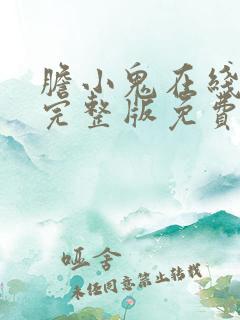 膽小鬼在綫
完整版免費
哑舍
未经同意禁止转载